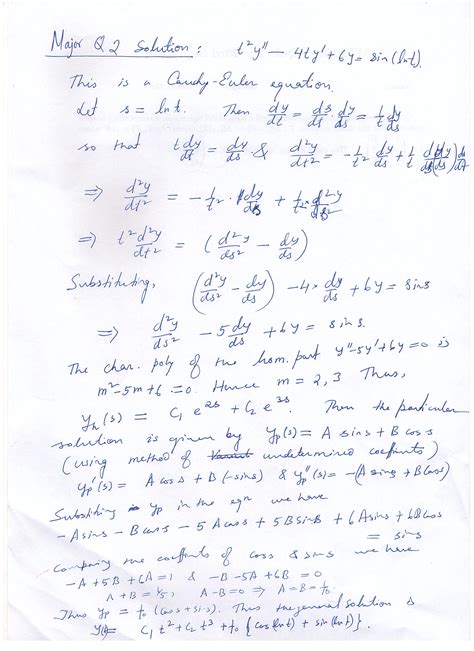 Major Q 2 Solution: t²y'' - 4ty' + 6y = sin(ln t).
This is a Cauchy-Euler equation.
Let s = ln t. Then dy/dt = ds/dt · dy/ds = 1/t dy/ds
so that t dy/dt = dy/ds & d²y/dt² = -1/t² dy/ds + 1/t d/ds(dy/ds) ds/dt
⇒ d²y/dt² = -1/t² · dy/ds + 1/t² d²y/ds²
⇒ t² d²y/dt² = (d²y/ds² - dy/ds)
Substituting, (d²y/ds² - dy/ds) - 4 dy/ds + 6y = sin s
⇒ d²y/ds² - 5 dy/ds + 6y = sin s.
The char. poly of the hom. part y'' - 5y' + 6y = 0 is
m² - 5m + 6 = 0. Hence m = 2, 3 Thus,
y_h(s) = C₁ e^{2s} + C₂ e^{3s}. Then the particular
solution is given by y_p(s) = A sin s + B cos s
(using method of undetermined coeffients)
y_p'(s) = A cos s + B(-sin s) & y_p''(s) = -(A sin s + B cos s)
Substituting y_p in the eqn we have
-A sin s - B cos s - 5 A cos s + 5 B sin s + 6 A sin s + 6 B cos s
= sin s
comparing the coeffients of cos s & sin s we have
-A + 5B + 6A = 1 & -B - 5A + 6B = 0
A + B = 1/5, A - B = 0 ⇒ A = B = 1/10.
Thus y_p = 1/10 (cos s + sin s). Thus the general solution is
y(t) = C₁ t² + C₂ t³ + 1/10 {cos(ln t) + sin(ln t)}.